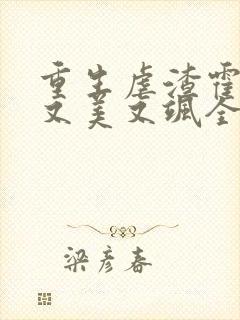 重生虐渣霍
又美又飒全
梁彦春